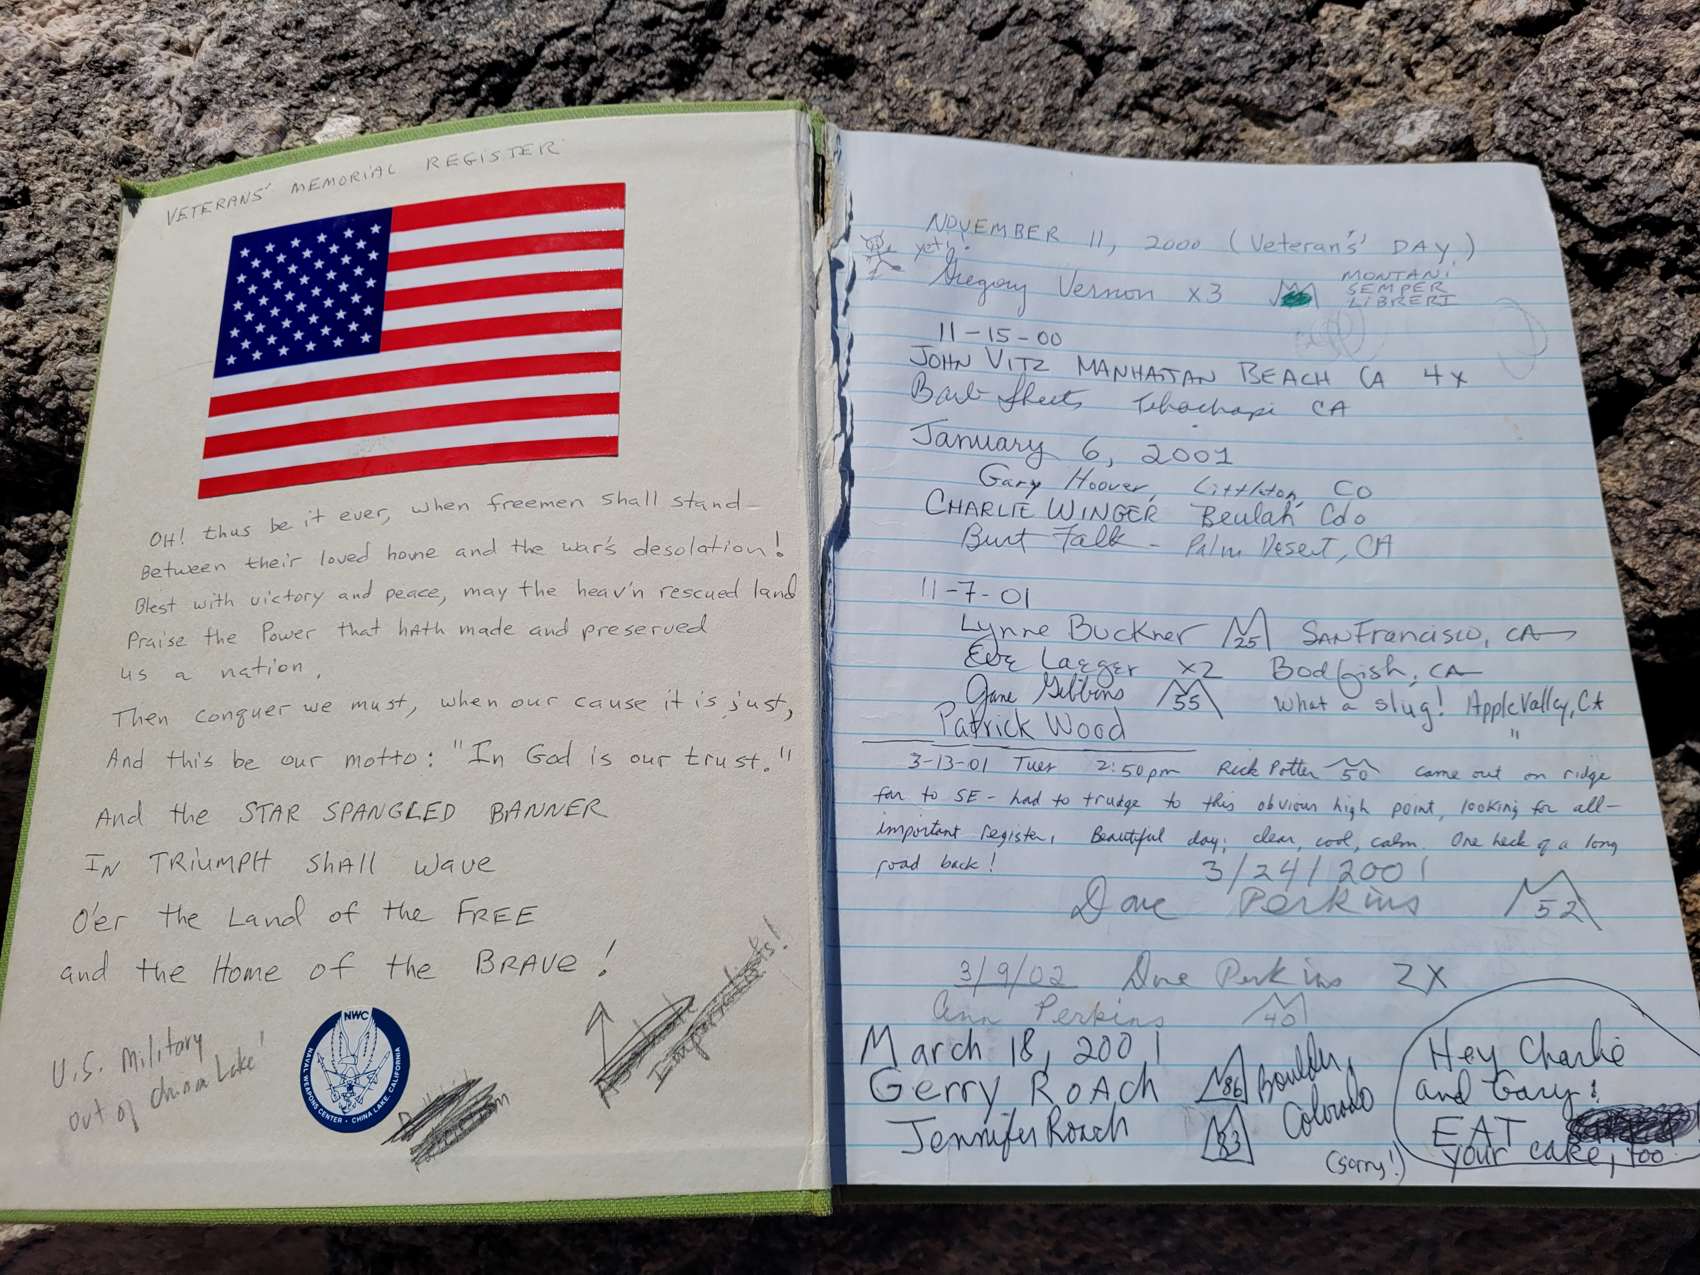 VETERANS' MEMORIAL REGISTER
OH! thus be it ever, when freemen shall stand
Between their loved home and the war's desolation!
Blest with victory and peace, may the heav'n rescued land
Praise the Power that hath made and preserved
us a nation.
Then conquer we must, when our cause it is just,
And this be our motto: "In God is our trust."
And the STAR SPANGLED BANNER
IN TRIUMPH SHALL WAVE
O'er the Land of the FREE
and the Home of the BRAVE!
U.S. Military
out of China Lake!
NWC
NAVAL WEAPONS CENTER • CHINA LAKE, CALIFORNIA
Imperialists!
NOVEMBER 11, 2000 (Veteran's' DAY)
yeti!
Gregory Vernon x3
MONTANI
SEMPER
LIBRERI
11-15-00
JOHN VITZ MANHATTAN BEACH CA 4x
Barb Sheets Tehachapi CA
January 6, 2001
Gary Hoover, Littleton, CO
CHARLIE WINGER Beulah Colo
Burt Falk - Palm Desert, CA
11-7-01
Lynne Buckner 25 SAN Francisco, CA
Eve Laeger x2 Bodfish, CA
Jane Gibbons 55 What a slug! Apple Valley, CA
Patrick Wood "
3-13-01 Tues 2:50pm Rick Potter 50 came out on ridge
far to SE - had to trudge to this obvious high point, looking for all-
important register. Beautiful day; clear, cool, calm. One heck of a long
road back!
3/24/2001
Dave Perkins 52
3/9/02 Dave Perkins 2X
Ann Perkins 40
March 18, 2001
Gerry Roach 86 Boulder,
Jennifer Roach 83 Colorado
(sorry!)
Hey Charlie
and Gary!
EAT
your cake, too!